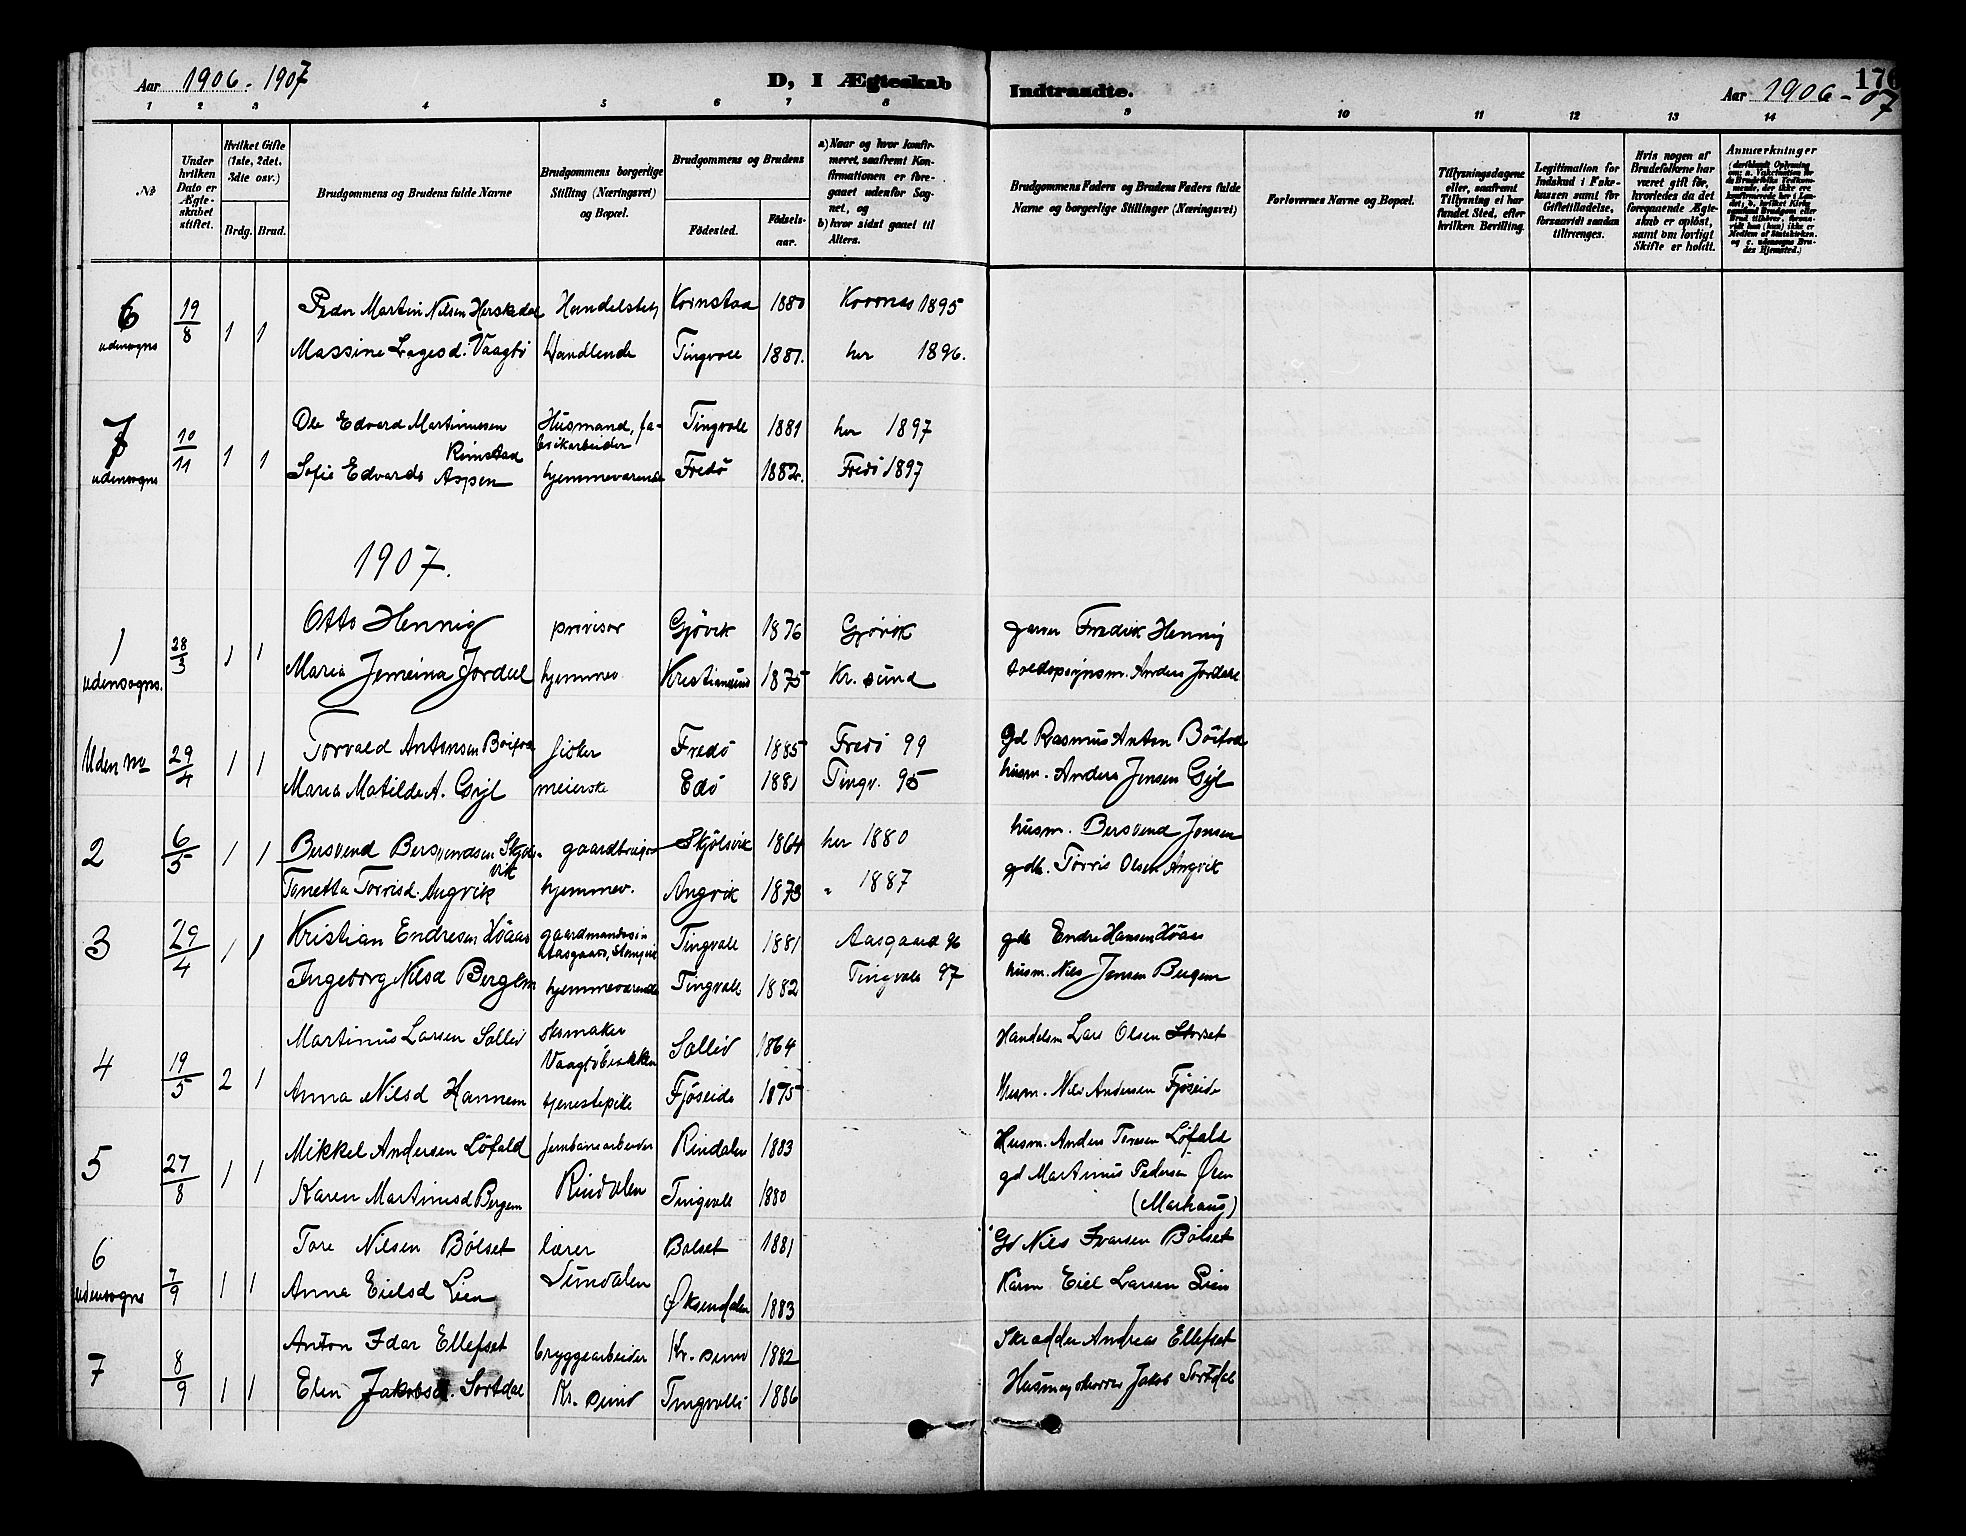 Aar 1906-1907
D, I Ægteskab
Indtraadte.
Aar 1906-07
176
1 2 3 4 5 6 7 8 9 10 11 12 13 14
No
Under hvilken Dato er Ægteskabet stiftet.
Hvilket Gifte (1ste, 2det, 3die osv.)
Brdg. Brud.
Brudgommens og Brudens fulde Navne
Brudgommens borgerlige Stilling (Næringsvei) og Bopæl.
Brudgommens og Brudens
Fødested.
Fødselsaar.
a) Naar og hvor konfirmeret, saafremt Konfirmationen er foregaaet udenfor Sognet, og
b) hvor sidst gaaet til Alters.
Brudgommens Faders og Brudens Faders fulde Navne og borgerlige Stillinger (Næringsvei)
Forlovernes Navne og Bopæl.
Tillysningsdagene eller, saafremt Tillysning ei har fundet Sted, efter hvilken Bevilling.
Legitimation for Indskud i Fakekassen samt for Giftetilladelse, forsaavidt saadan tiltrænges.
Hvis nogen af Brudefolkene har været gift før, hvorledes da det foregaaende Ægteskab er opløst, samt om lovligt Skifte er holdt.
Anmærkninger
6 19/8 1 1 Peder Martin Nilsen Herskedal Handelsbetj Kornstad 1880 Kvernes 1895
udensogns Massine Lagesd. Vaagbø Handlende Tingvoll 1881. her 1896.
7 10/11 1 1 Ole Edvard Martinussen Husmand, fa- Tingvoll 1881 her 1897
Rimstad brikarbeider
udensogns Sofie Edvards Aspen hjemmeværende Fredø 1882. Fredø 1897
1907.
1 28/3 1 1 Otto Hennig provisor Gjøvik 1876 Gjøvik garver Fredrik Hennig
udensogns. Maria Jemeina Jordell hjemmev Kristiansund 1875 Kr. sund Anders Jordell
Uden no 29/4 1 1 Torvald Antonsen fisker Fredø 1885 Fredø 99 Gd Rasmus Anton
Maria Matilde A. Gyl meierske Edø 1881 Tingv. 95 husm. Anders Jensen Gyl
2 6/5 1 1 Bersvend Bersvendsen Skjøls- gaardbruger Skjølsvik 1864 her 1880 husm. Bersvend Jonsen
vik
Tonetta Torrisd. Angvik hjemmev. Angvik 1873 " 1887 gdb. Torris Olsen Angvik
3 29/4 1 1 Kristian Endresen Høaas gaardmandssøn Tingvoll 1881 Aasgaard 96 gdb Endre Hansen Høaas
Ingeborg Nilsd Bergem hjemmeværende Tingvoll 1882 Tingvoll 97 husm. Nils Jensen Bergem
4 19/5 2 1 Martinus Larsen Sollid skomaker Sollid 1864 Handelsm Lars Olsen Storset
Vaagbøbakken
Anna Nilsd Hannem tjenestepike Fjøseide 1875 Husm. Nils Andersen Fjøseide
5 27/8 1 1 Mikkel Andersen Løfald jernbanearbeider Rindalen 1883 Husm. Anders Tøresen Løfald
Karen Martinusd Bergem Rindalen Tingvoll 1880 gd Martinus Pedersen Øien
(Markaug)
6 7/9 1 1 Tore Nilsen Bølset lærer Bølset 1881 Gd Nils Ivarsen Bølset
udensogns Anna Eielsd Lien Sundalen Øksendalen 1883 Kaarm Eiel Larsen Lien
7 8/9 1 1 Anton Idar Ellefset bryggearbeider Kr. sund 1882 Skrædder Andreas Ellefset
Elen Jakobsd. Sortdal Kr. sund Tingvoll 1886 Jakob Sortdal